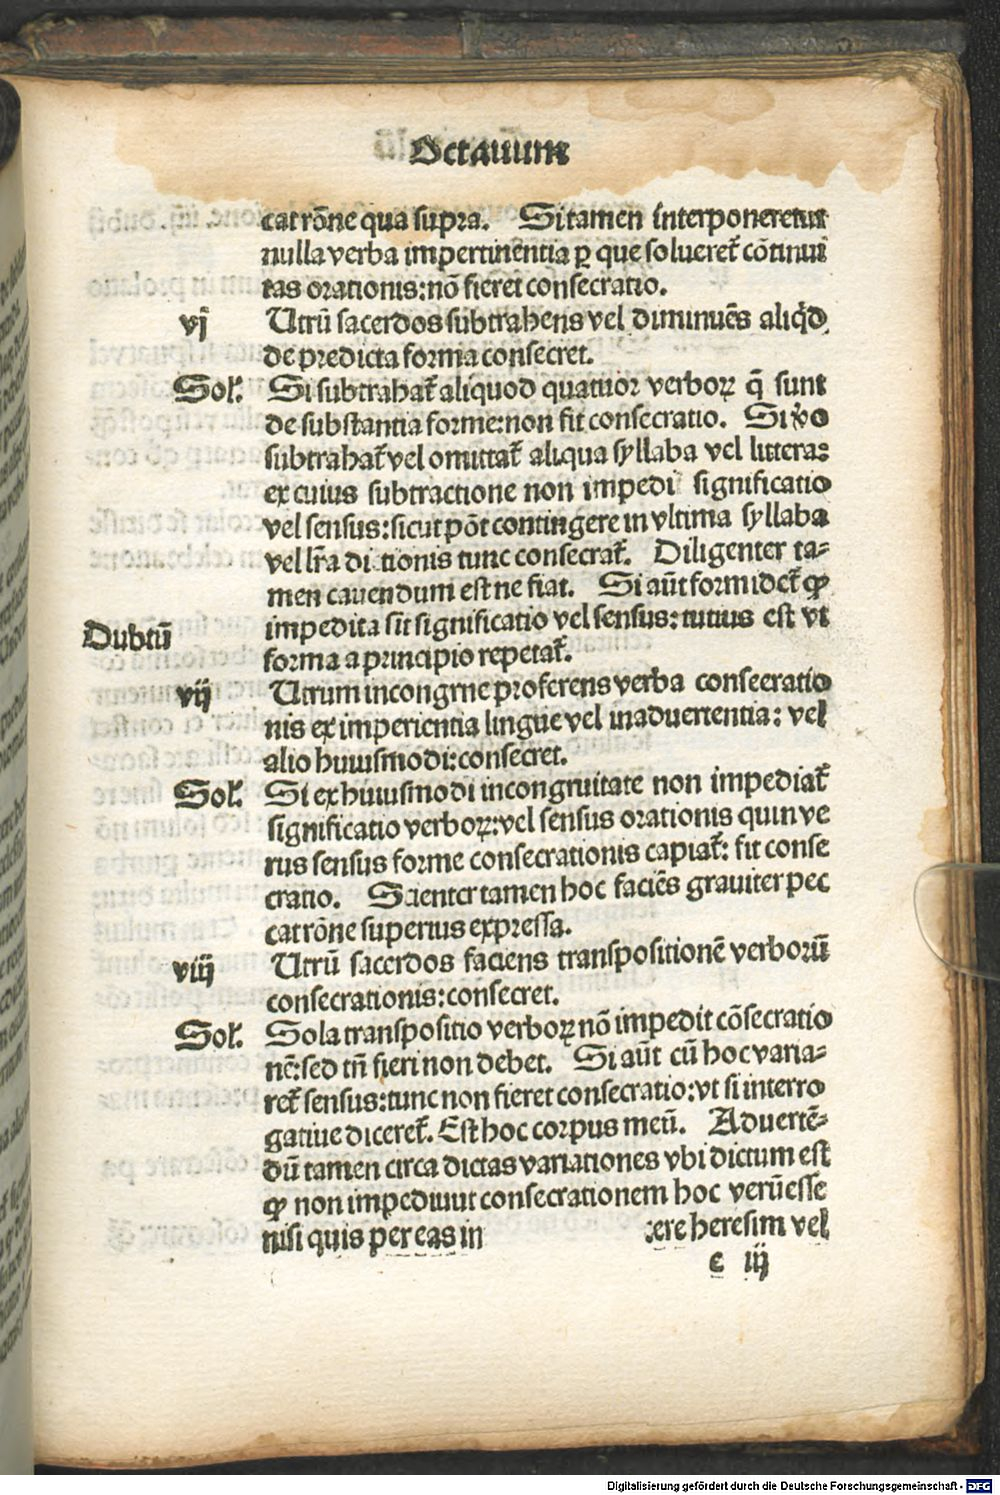 Octauum
cat rōne qua supra. Si tamen interponeretur
nulla verba impertinentia ꝑ que solueret̄ cōtinui
tas orationis: nō fieret consecratio.
vj Utrū sacerdos subtrahens vel diminuēs aliq̄d
de predicta forma consecret.
Sol. Si subtrahat̄ aliquod quatuor verboꝝ q̄ sunt
de substantia forme: non fit consecratio. Si v̄o
subtrahat̄ vel omittat̄ aliqua syllaba vel littera:
ex cuius subtractione non impedi significatio
vel sensus: sicut pōt contingere in vltima syllaba
vel lr̄a di tionis tunc consecrat̄. Diligenter ta⸗
men cauendum est ne fiat. Si aūt formidet̄ ꝙ
impedita sit significatio vel sensus: tutius est vt
forma a principio repetat̄.
Dubiū
vij Utrum incongrue proferens verba consecratio
nis ex imperientia lingue vel inaduertentia: vel
alio huiusmodi: consecret.
Sol. Si ex huiusmodi incongruitate non impediat̄
significatio verboꝝ: vel sensus orationis quin ve
rus sensus forme consecrationis capiat̄: fit conse
cratio. Scienter tamen hoc faciēs grauiter pec
cat rōne superius expressa.
viij Utrū sacerdos faciens transpositionē verborū
consecrationis: consecret.
Sol. Sola transpositio verboꝝ nō impedit cōsecratio
nē: sed tn̄ fieri non debet. Si aūt cū hoc varia⸗
ret̄ sensus: tunc non fieret consecratio: vt si interro
gatiue diceret̄. Est hoc corpus meū. Aduertē⸗
dū tamen circa dictas variationes vbi dictum est
ꝙ non impediunt consecrationem hoc verū esse
nisi quis per eas in ere heresim vel
c iij
Digitalisierung gefördert durch die Deutsche Forschungsgemeinschaft - DFG